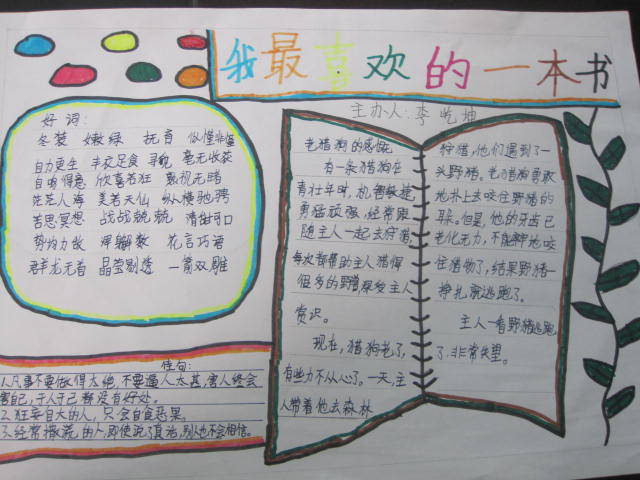 我最喜欢的一本书
主办人:李屹坤
好词:
冬装 嫩绿 抚育 似懂非懂
自力更生 丰衣足食 寻觅 毫无收获
自鸣得意 欣喜若狂 熟视无睹
茫茫人海 美若天仙 纵横驰骋
苦思冥想 战战兢兢 清甜可口
势均力敌 花言巧语
群龙无首 晶莹剔透 一箭双雕
佳句:
1.凡事不要做得太绝,不要逼人太甚,害人终会
害自己,于人于己都没有好处。
2.狂妄自大的人,只会自食恶果。
3.经常撒谎的人,即使说了真话,别人也不会相信。
老猎狗的感慨
有一条猎狗在
青壮年时,机智敏捷
勇猛顽强,经常跟
随主人一起去狩猎,
每次都帮助主人猎得
很多的野兽,深受主人
赏识。
现在,猎狗老了,
有些力不从心了。一天,主
人带着他去森林
狩猎,他们遇到了一
头野猪。老猎狗勇敢
地扑上去咬住野猪的
耳朵。但是,他的牙齿已
老化无力,不能牢牢地咬
住猎物了,结果野猪一
挣扎就逃跑了。
主人一看野猪逃跑
了,非常失望。